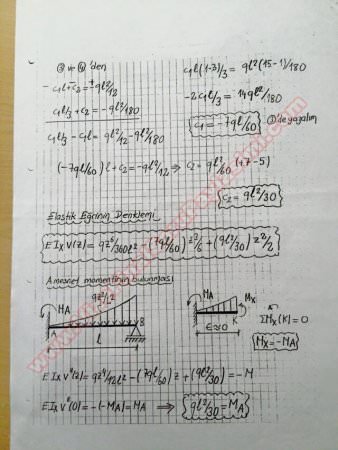 ③ ve ④ 'den
- c₁l + c₂ = +ql²/12
c₁l/3 + c₂ = -ql²/180
c₁l/3 - c₁l = ql²/12 - ql²/180
c₁l(1-3)/3 = ql²(15-1)/180
-2c₁l/3 = 14ql²/180
c₁ = -7ql/60 ①'de yazalım
(-7ql/60)l + c₂ = -ql²/12 ⇒ c₂ = ql²/60 (+7-5)
c₂ = ql²/30
Elastik Eğrinin Denklemi
EIx V(z) = qz⁶/360l² - (7ql/60) z³/6 + (ql²/30) z²/2
A mesnet momentinin bulunması
qz²/l²
MA
B
l
MA
Mx
K
ε≈0
ΣMx(K) = 0
Mx = -MA
EIx V''(z) = qz⁴/12l² - (7ql/60) z + (ql²/30) = -M
EIx V''(0) = -(-MA) = MA ⇒ ql²/30 = MA